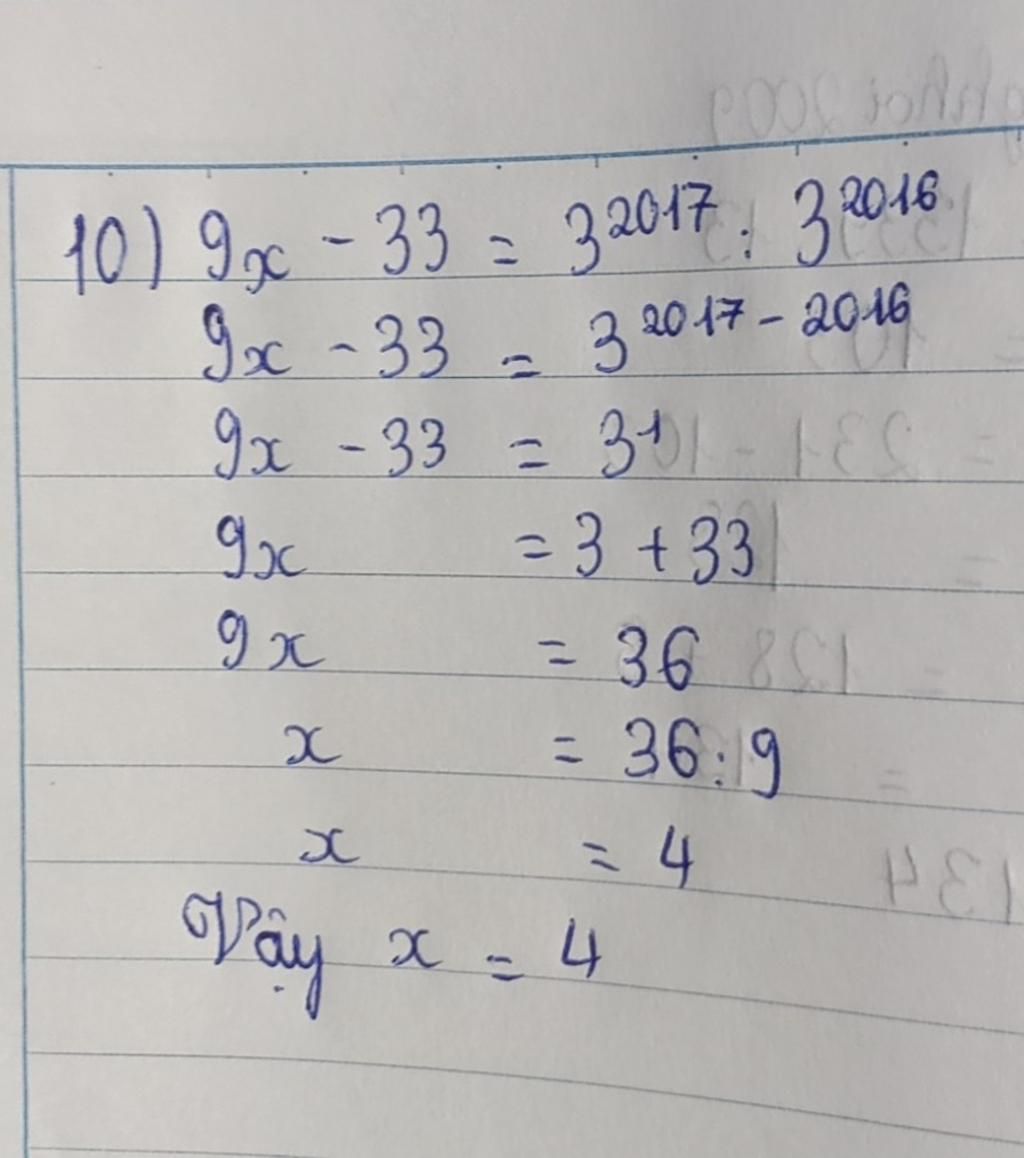 10) 9x - 33 = 3²⁰¹⁷ : 3²⁰¹⁶
9x - 33 = 3²⁰¹⁷⁻²⁰¹⁶
9x - 33 = 3¹
9x = 3 + 33
9x = 36
x = 36 : 9
x = 4
Vậy x = 4